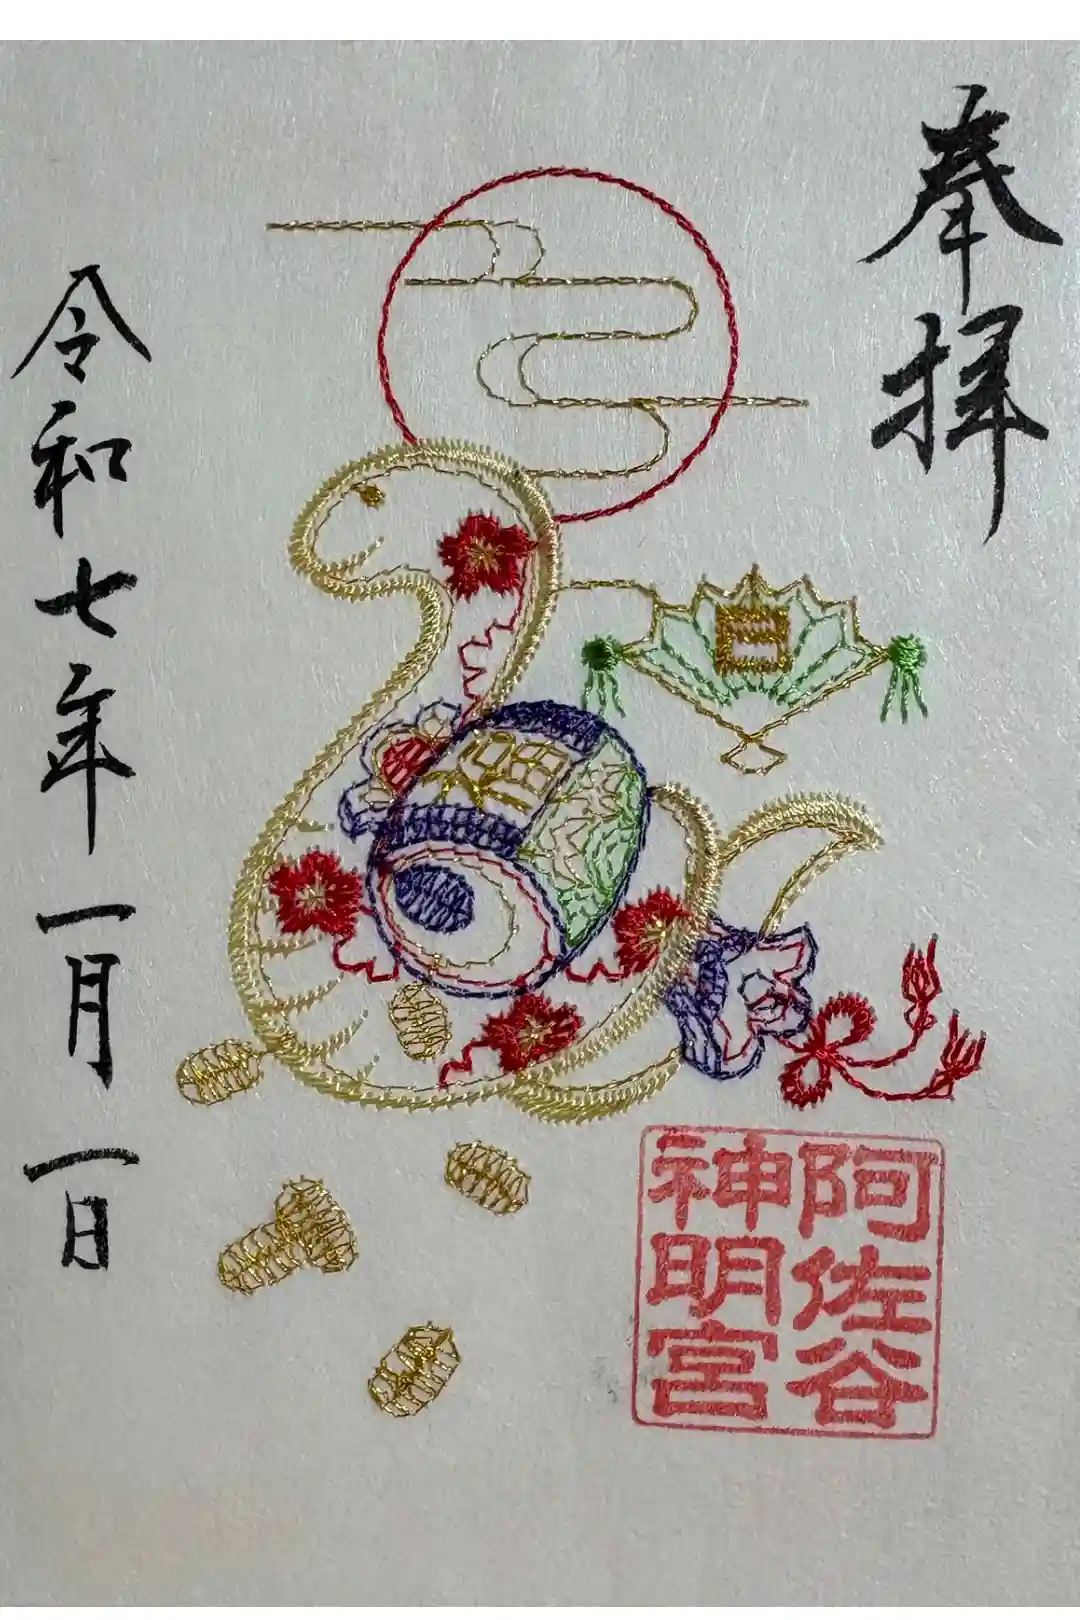 奉拝
阿佐谷
神明宮
令和七年一月一日